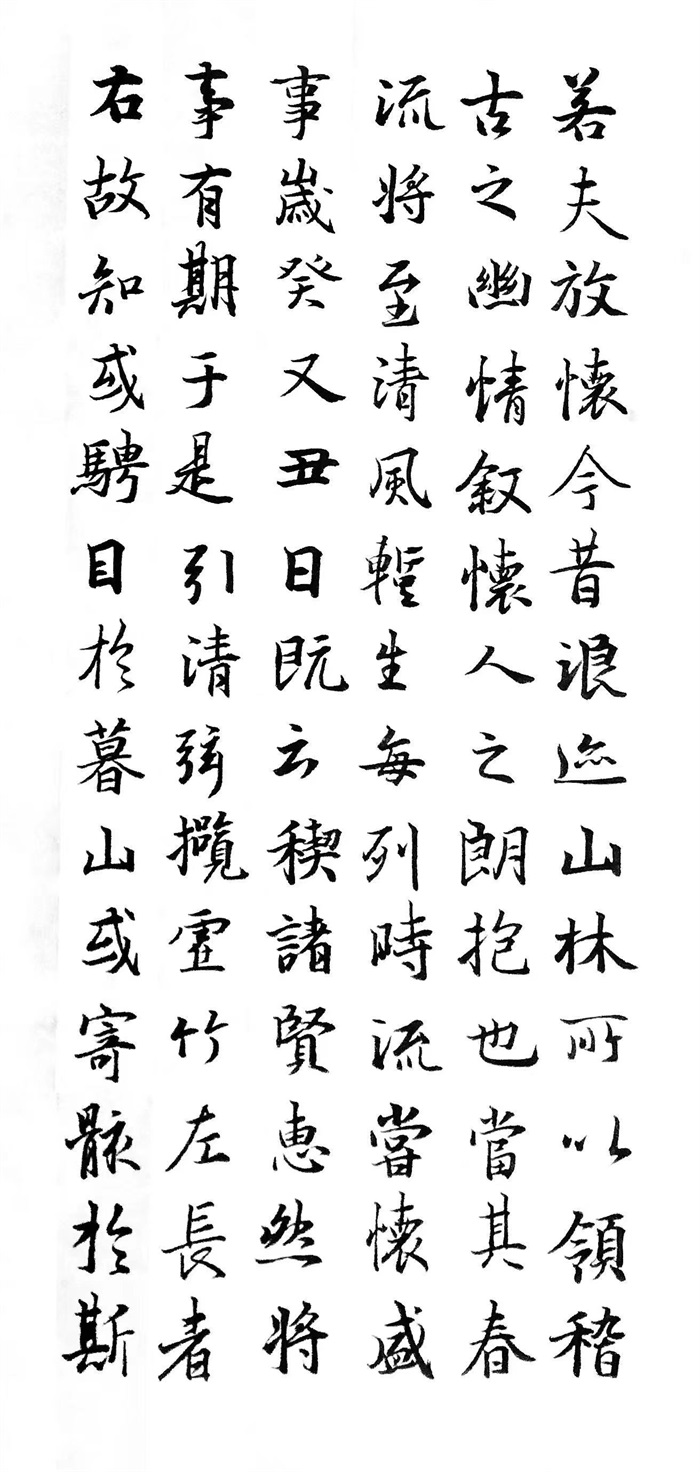 若夫放懷今昔浪迹山林所以領稽
古之幽情叙懷人之朗抱也當其春
流將至清風輕生每列時流嘗懷盛
事歲癸又丑日既云稧諸賢惠然將
事有期于是引清弦攬虛竹左長者
右故知或騁目於暮山或寄骸於斯